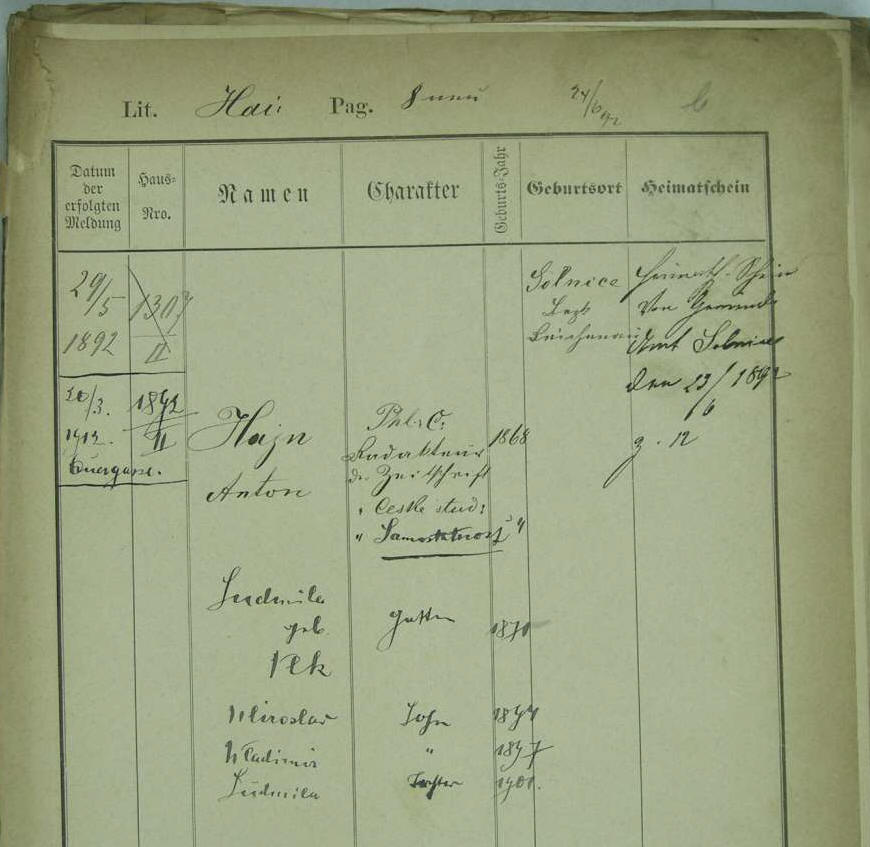 Lit. Hai Pag. 8 neu 24/6 92 b
Datum der erfolgten Meldung
Haus-Nro.
Namen
Charakter
Geburts-Jahr
Geburtsort
Heimatschein
29/5 1307
1892 II
Solnice
Bezk
Reichenau
Heimath-Schein
von Gemeinde
Amt Solnice
den 23/6 1892
z. 12
20/3. 1892
1912. II
Quergasse.
Hajn
Anton
Phl: C:
Redakteur
der Zeitschrift
" Ceské stud:
" Samostatnost "
1868
Ludmila
geb.
Vlk
Gattin
1870
Miroslav Sohn 1894
Wladimir " 1897
Ludmila Tochter 1901.